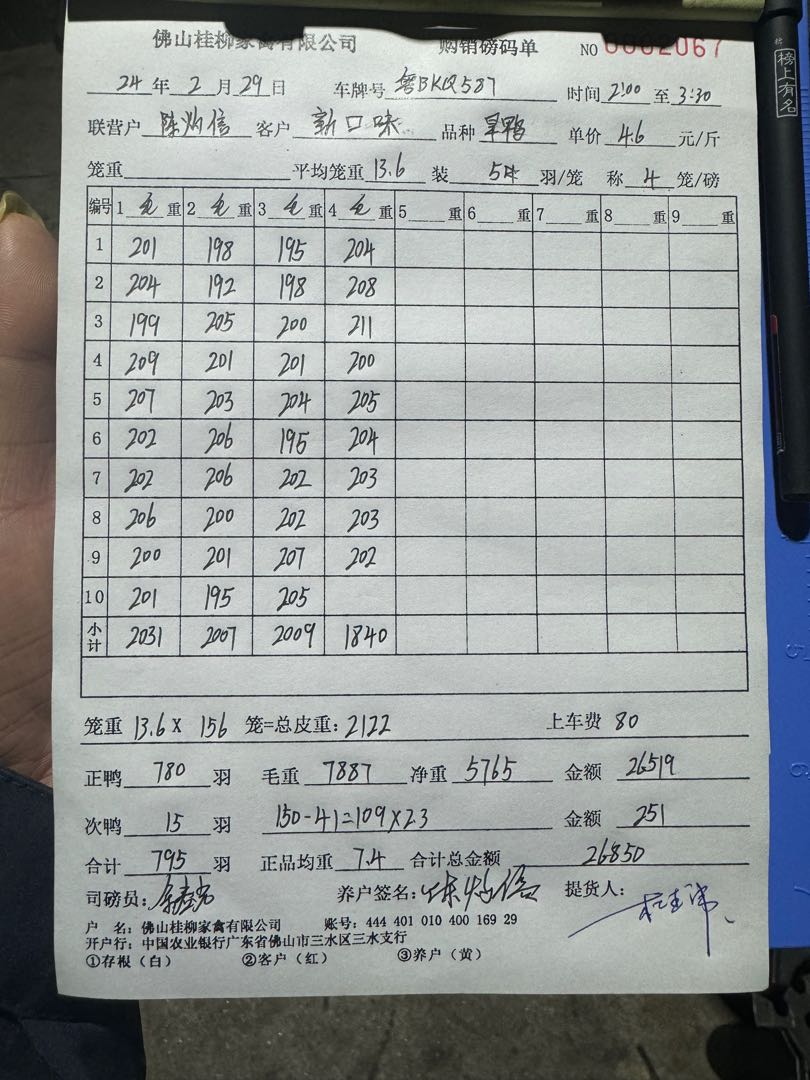 佛山桂柳家禽有限公司 购销磅码单 NO 0002067
24 年 2 月 29 日 车牌号 粤BKQ587 时间 2:00 至 3:30
联营户 陈灿信 客户 新口味 品种 旱鸭 单价 4.6 元/斤
笼重 平均笼重 13.6 装 5 羽/笼 称 4 笼/磅
编号 1 毛 重 2 毛 重 3 毛 重 4 毛 重 5 重 6 重 7 重 8 重 9 重
1 201 198 195 204
2 204 192 198 208
3 199 205 200 211
4 209 201 201 200
5 207 203 204 205
6 202 206 195 204
7 202 206 202 203
8 206 200 202 203
9 200 201 207 202
10 201 195 205
小计 2031 2007 2009 1840
笼重 13.6 X 156 笼=总皮重: 2122 上车费 80
正鸭 780 羽 毛重 7887 净重 5765 金额 26519
次鸭 15 羽 150-41=109×2.3 金额 251
合计 795 羽 正品均重 7.4 合计总金额 26850
司磅员: 养户签名: 陈灿信 提货人:
户 名: 佛山桂柳家禽有限公司 账号: 444 401 010 400 169 29
开户行: 中国农业银行广东省佛山市三水区三水支行
①存根(白) ②客户(红) ③养户(黄)
榜上有名